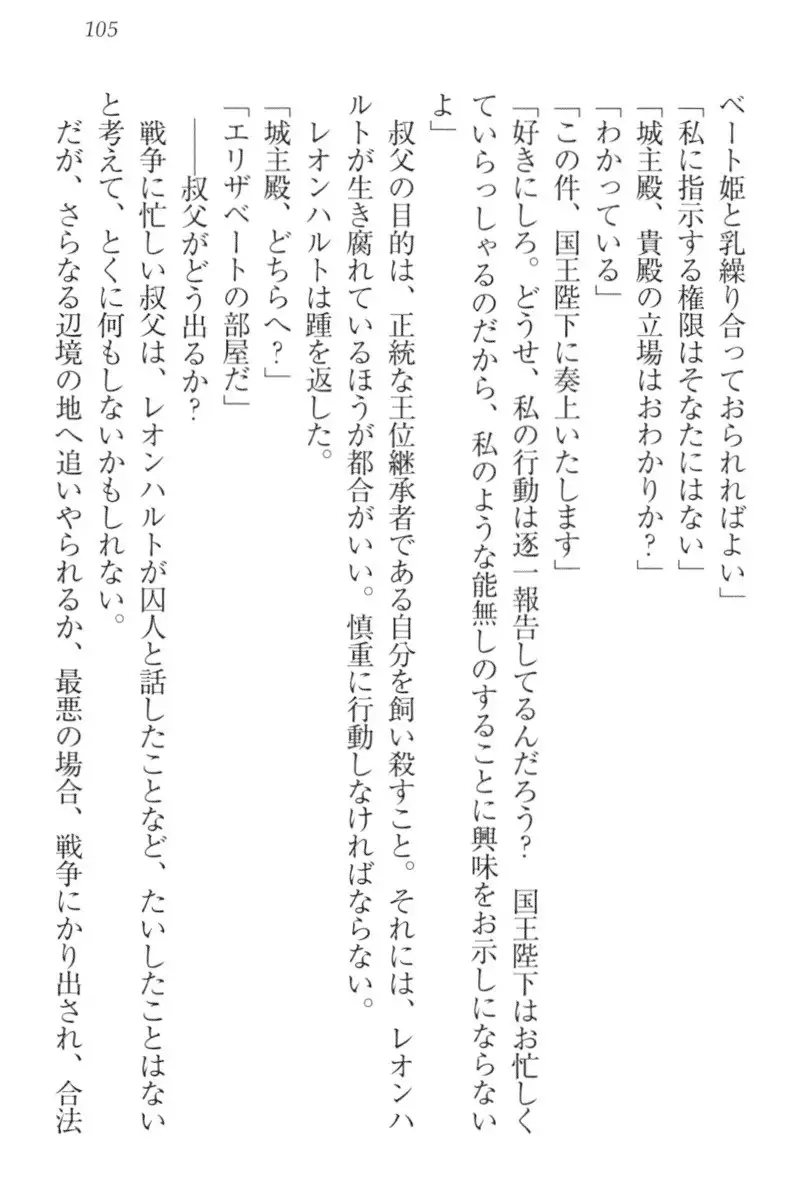 105
ベート姫と乳繰り合っておられればよい」
「私に指示する権限はそなたにはない」
「城主殿、貴殿の立場はおわかりか?」
「わかっている」
「この件、国王陛下に奏上いたします」
「好きにしろ。どうせ、私の行動は逐一報告してるんだろう?　国王陛下はお忙しく
ていらっしゃるのだから、私のような能無しのすることに興味をお示しにならない
よ」
　叔父の目的は、正統な王位継承者である自分を飼い殺すこと。それには、レオンハ
ルトが生き腐れているほうが都合がいい。慎重に行動しなければならない。
　レオンハルトは踵を返した。
「城主殿、どちらへ?」
「エリザベートの部屋だ」
　――叔父がどう出るか?
　戦争に忙しい叔父は、レオンハルトが囚人と話したことなど、たいしたことはない
と考えて、とくに何もしないかもしれない。
　だが、さらなる辺境の地へ追いやられるか、最悪の場合、戦争にかり出され、合法